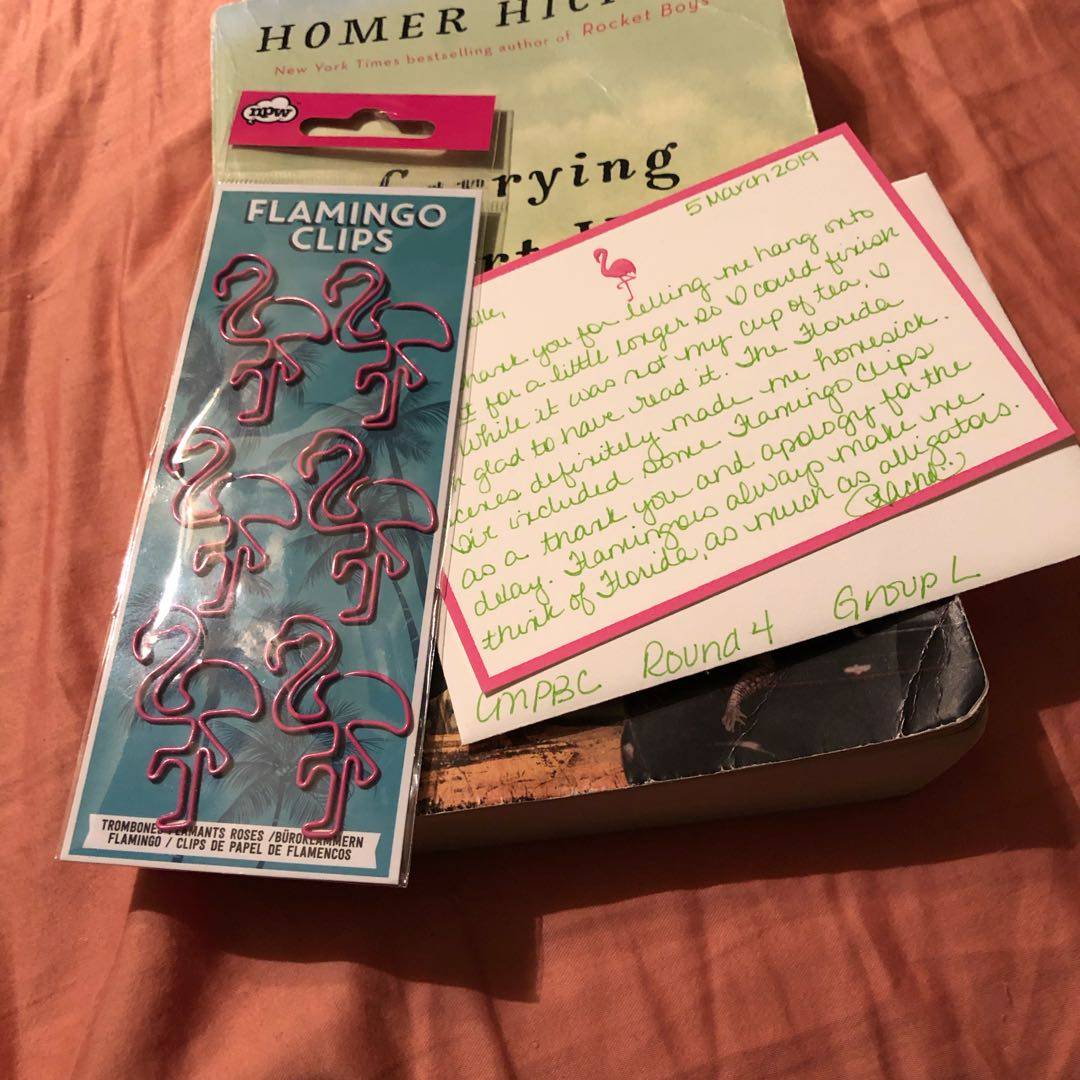 HOMER
New York Times bestselling author of Rocket Boys
npw
rying
FLAMINGO
CLIPS
TROMBONES FLAMANTS ROSES / BÜROKLAMMERN
FLAMINGO / CLIPS DE PAPEL DE FLAMENCOS
5 March 2019
you for letting me hang onto
for a little longer so I could finish
While it was not my cup of tea, I
glad to have read it. The Florida
definitely made me homesick.
included some Flamingo Clips
as a thank you and apology for the
delay. Flamingos always make me
think of Florida, as much as alligators.
Rachel :)
GMPBC Round 4 Group L